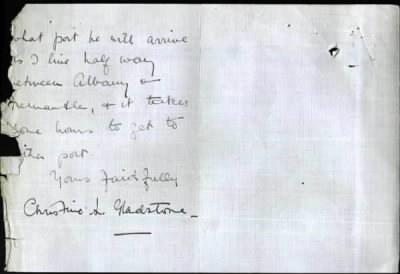 what port he will arrive
as I live half way
between Albany &
Fremantle, & it takes
some hours to get to
either port
Yours faithfully
Christine L. Gladstone